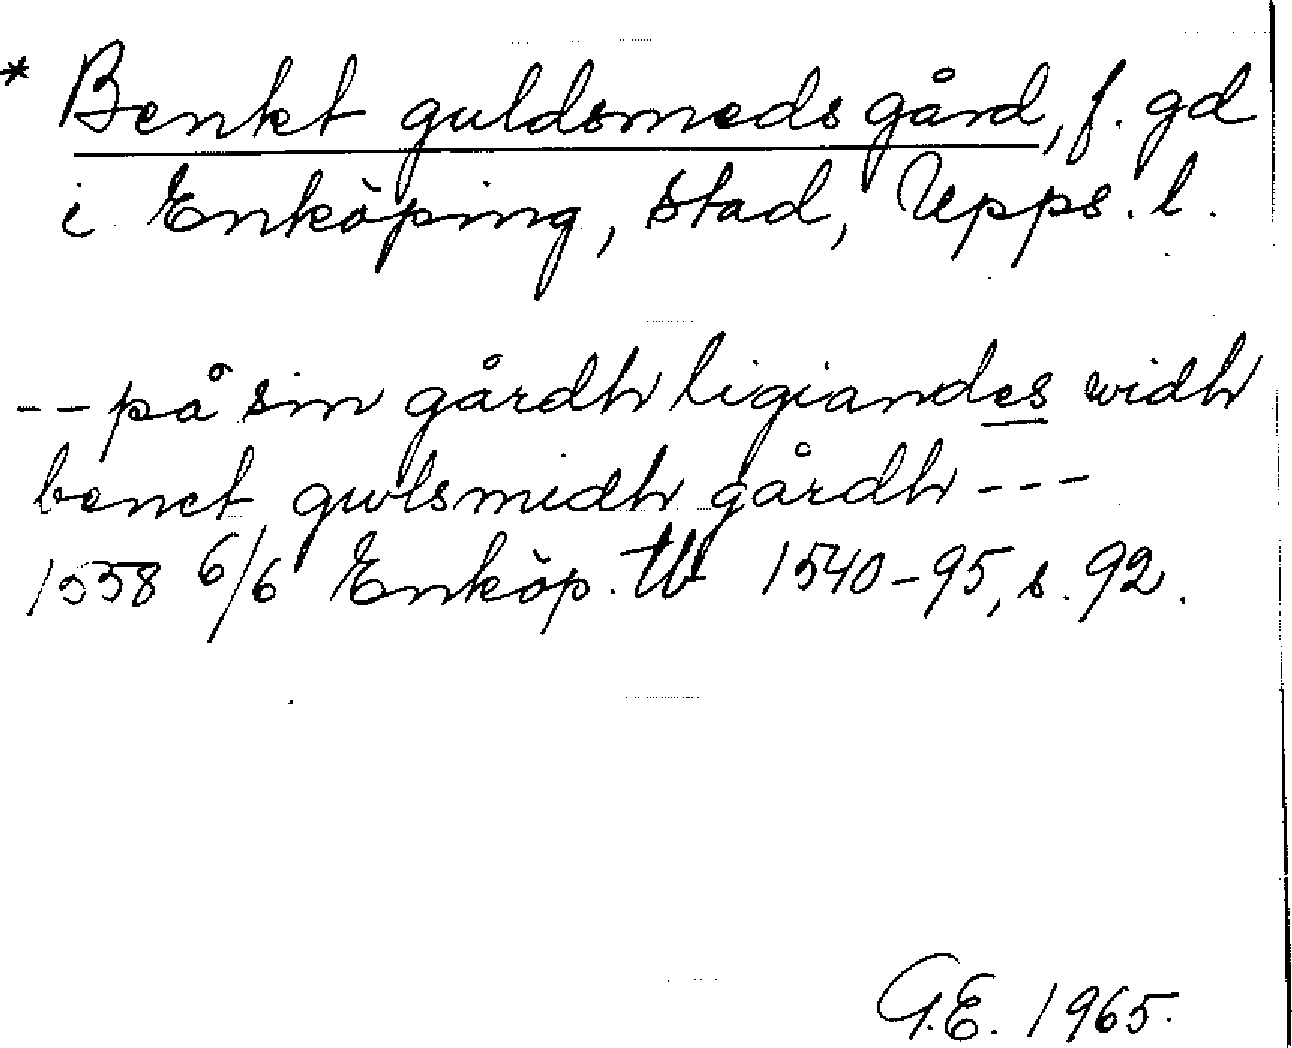 * Benkt guldsmeds gård, f. gd
i Enköping, stad, Upps. l.
-- på sin gårdh ligiandes widh
benct gwlsmidh gårdh ---
1558 6/6 Enköp. tb 1540-95, s. 92.
G.E. 1965.